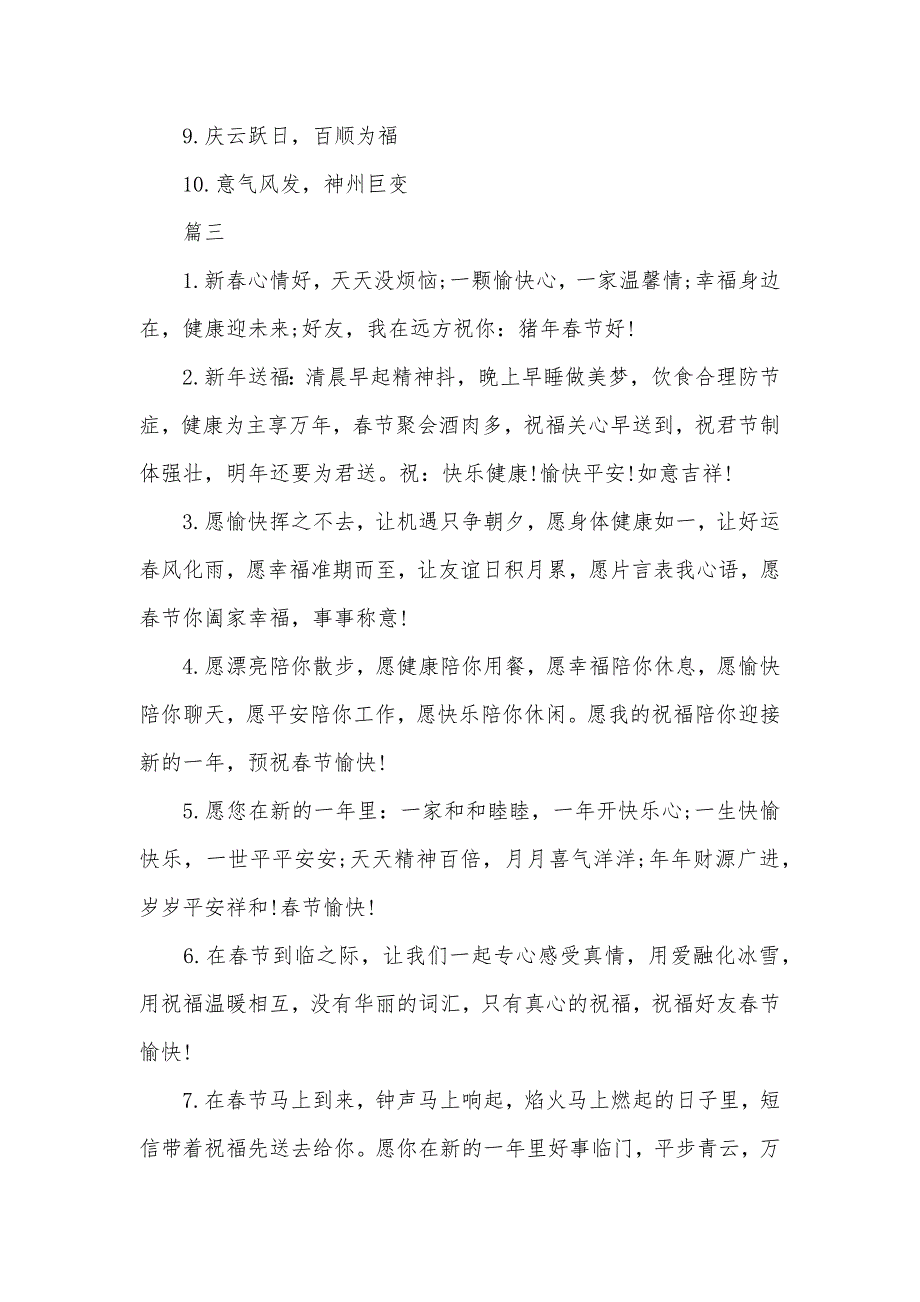 9.庆云跃日，百顺为福
10.意气风发，神州巨变
篇三
1.新春心情好，天天没烦恼;一颗愉快心，一家温馨情;幸福身边
在，健康迎未来;好友，我在远方祝你：猪年春节好!
2.新年送福：清晨早起精神抖，晚上早睡做美梦，饮食合理防节
症，健康为主享万年，春节聚会酒肉多，祝福关心早送到，祝君节制
体强壮，明年还要为君送。祝：快乐健康!愉快平安!如意吉祥!
3.愿愉快挥之不去，让机遇只争朝夕，愿身体健康如一，让好运
春风化雨，愿幸福准期而至，让友谊日积月累，愿片言表我心语，愿
春节你阖家幸福，事事称意!
4.愿漂亮陪你散步，愿健康陪你用餐，愿幸福陪你休息，愿愉快
陪你聊天，愿平安陪你工作，愿快乐陪你休闲。愿我的祝福陪你迎接
新的一年，预祝春节愉快!
5.愿您在新的一年里：一家和和睦睦，一年开快乐心;一生快愉
快乐，一世平平安安;天天精神百倍，月月喜气洋洋;年年财源广进，
岁岁平安祥和!春节愉快!
6.在春节到临之际，让我们一起专心感受真情，用爱融化冰雪，
用祝福温暖相互，没有华丽的词汇，只有真心的祝福，祝福好友春节
愉快!
7.在春节马上到来，钟声马上响起，焰火马上燃起的日子里，短
信带着祝福先送去给你。愿你在新的一年里好事临门，平步青云，万